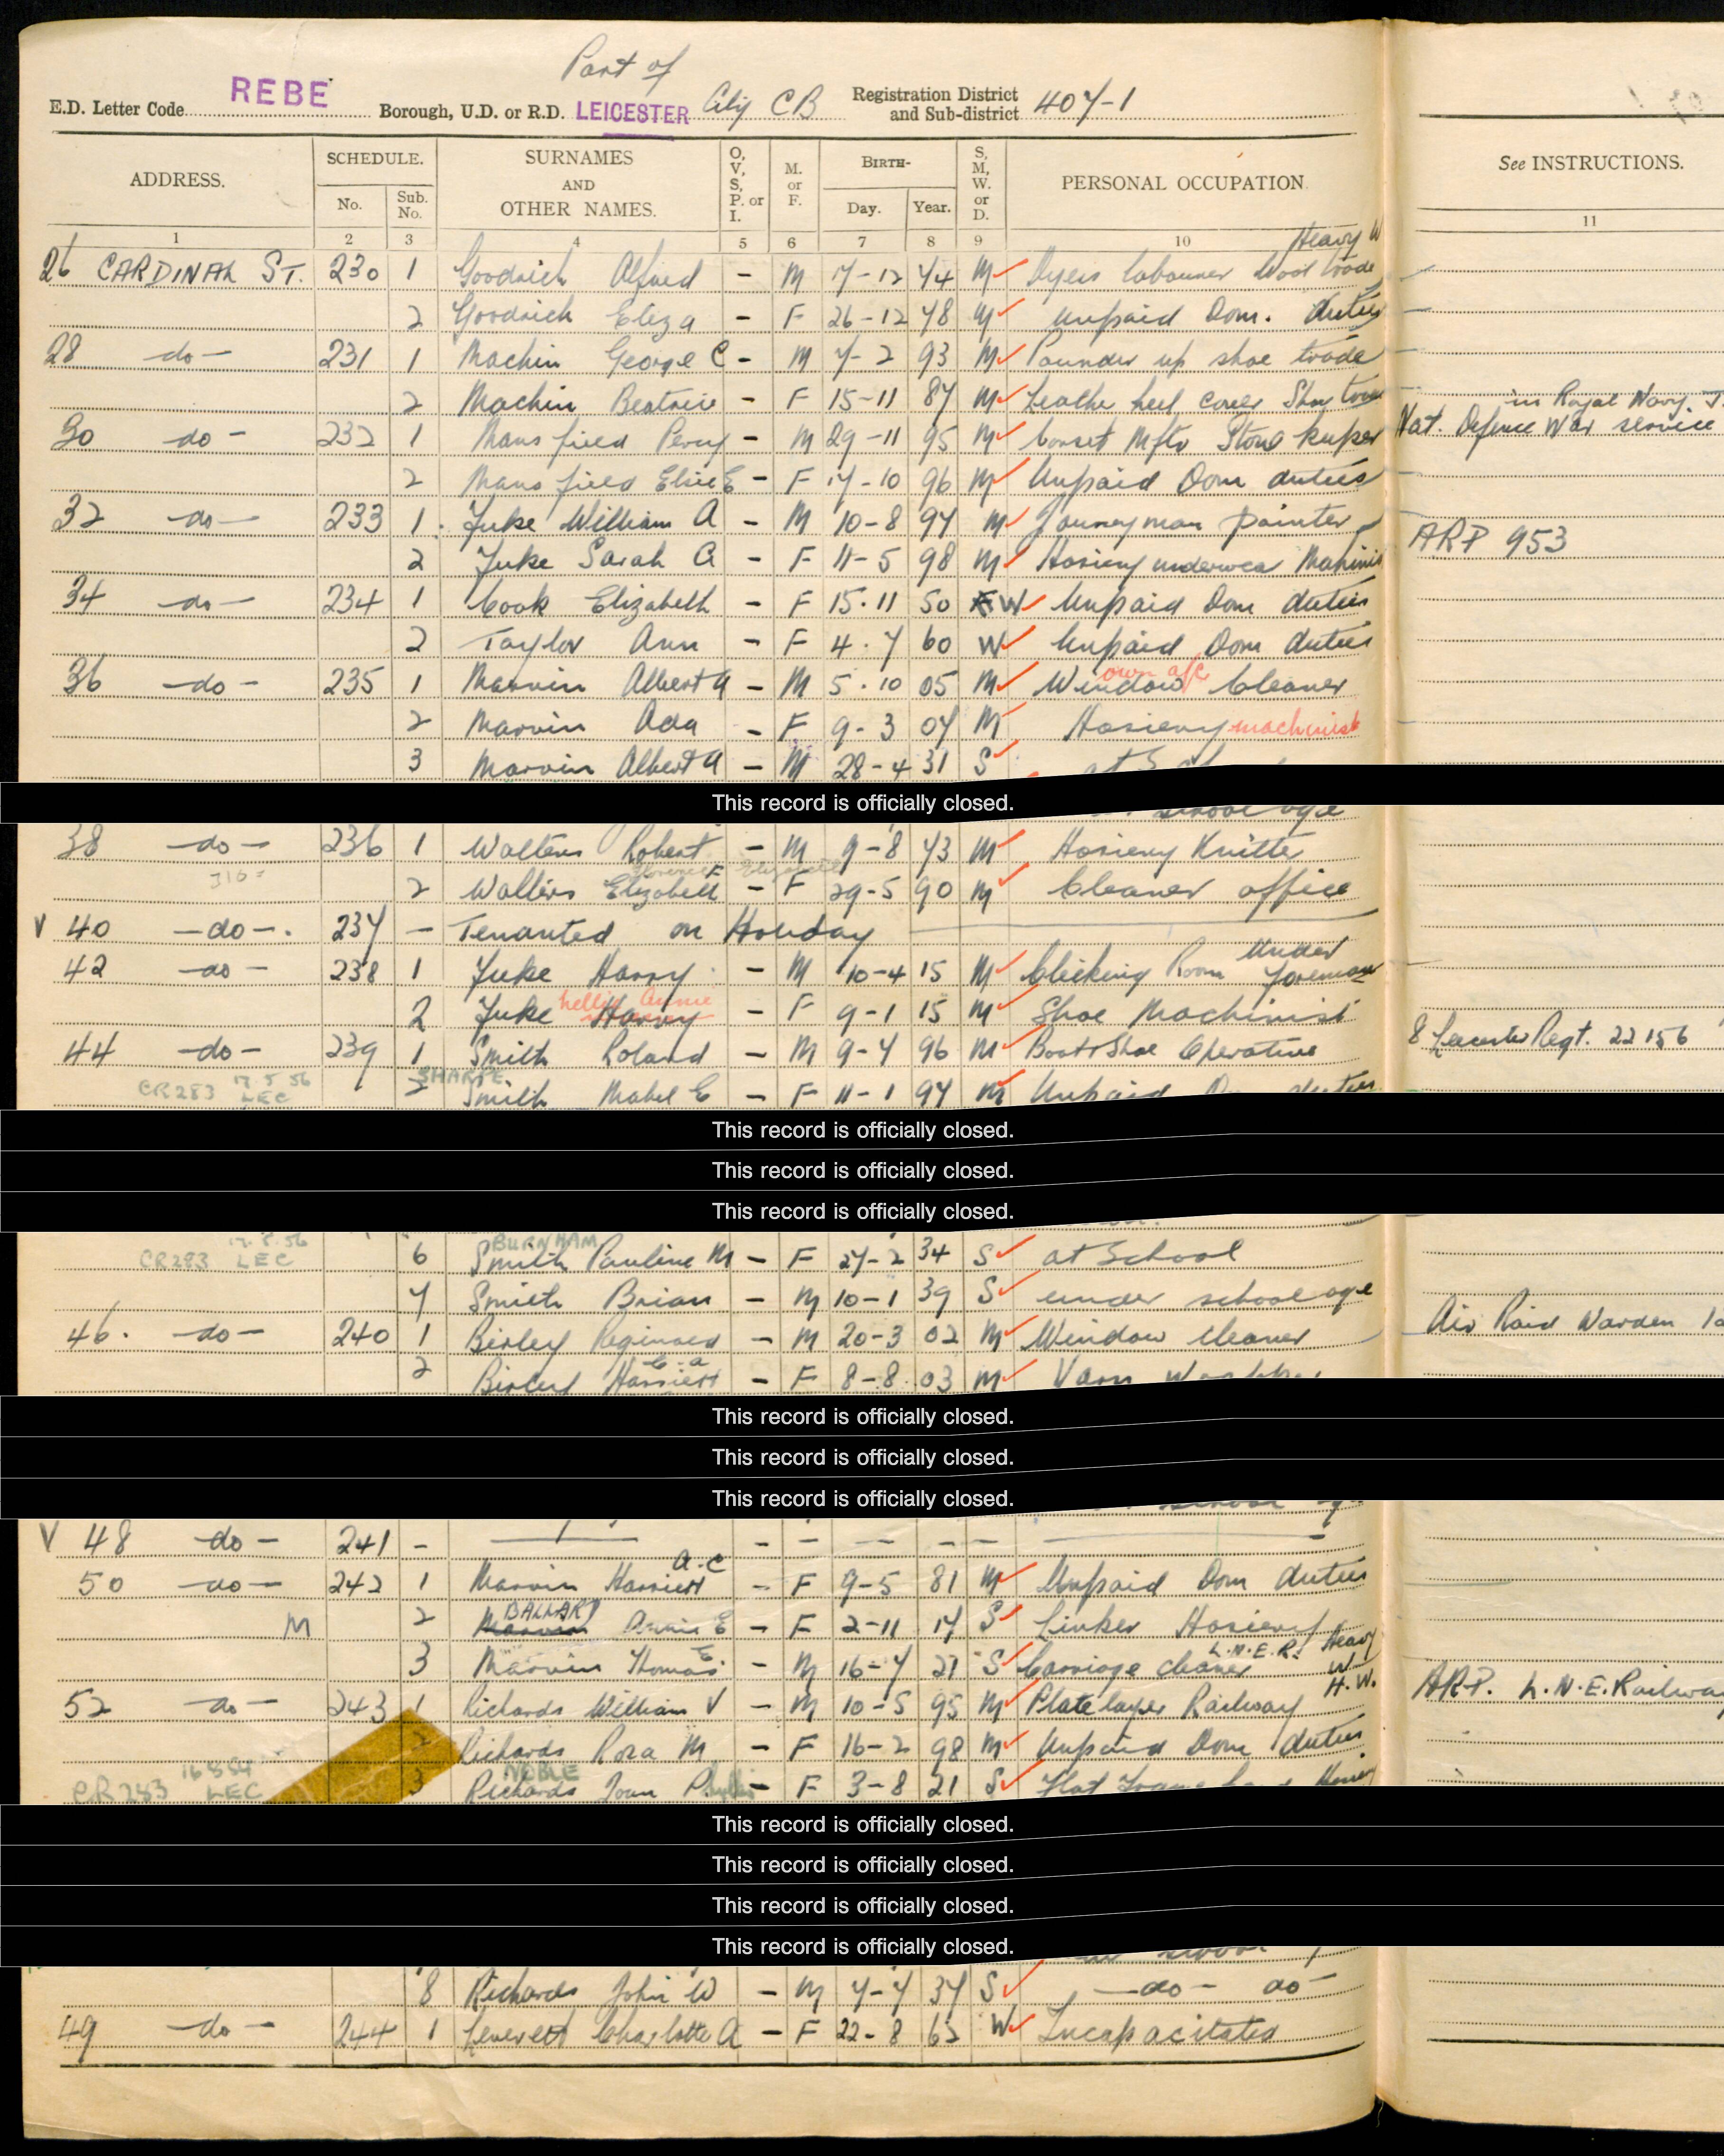 Part of
E.D. Letter Code REBE Borough, U.D. or R.D. LEICESTER City CB Registration District and Sub-district 407-1
ADDRESS. SCHEDULE. No. Sub. No. SURNAMES AND OTHER NAMES. O, V, S, P. or I. M. or F. BIRTH- Day. Year. S, M, W. or D. PERSONAL OCCUPATION See INSTRUCTIONS.
1 2 3 4 5 6 7 8 9 10 11
Heavy W
26 CARDINAL ST. 230 1 Goodrich Alfred - M 17-12 74 M Dyers labourer Wool trade
2 Goodrich Eliza - F 26-12 78 M unpaid Dom. duties
28 -do- 231 1 Machin George C - M 7-2 93 M Pounder up shoe trade
2 Machin Beatrice - F 15-11 87 M Leather heel cover Shoe trade
in Royal Navy.
30 -do- 232 1 Mansfield Percy - M 29-11 95 M Corset Mftr Store keeper Nat. Defence War service
2 Mansfield Elsie E - F 17-10 96 M Unpaid Dom duties
32 -do- 233 1 Juke William A - M 10-8 97 M Journeyman painter ARP 953
2 Juke Sarah A - F 11-5 98 M Hosiery underwear Mahinist
34 -do- 234 1 Cook Elizabeth - F 15.11 50 F W Unpaid Dom duties
2 Taylor Ann - F 4.7 60 W Unpaid Dom duties
own a/c
36 -do- 235 1 Marvin Albert A - M 5.10 05 M Window Cleaner
2 Marvin Ada - F 9-3 07 M Hosiery machinist
3 Marvin Albert A - M 28-4 31 S at
This record is officially closed.
school age
38 -do- 236 1 Walters Robert - M 9-8 73 M Hosiery Knitter
316 Florence F Elizabeth
2 Walters Elizabeth - F 29-5 90 M Cleaner office
V 40 -do-. 237 - Tenanted on Holiday
42 -do- 238 1 Juke Harry - M 10-4 15 M Clicking Room Under foreman
2 Juke Harry Nellie Annie - F 9-1 15 M Shoe Machinist
44 -do- 239 1 Smith Roland - M 9-7 96 M Boot & Shoe Operative 8 Leicester Regt. 22156
CR283 17.5.56 LEC SHARPE
2 Smith Mabel E - F 11-1 97 M Unpaid Dom duties
This record is officially closed.
This record is officially closed.
This record is officially closed.
CR283 LEC BURNHAM
6 Smith Pauline M - F 27-2 34 S at School
7 Smith Brian - M 10-1 39 S under school age
46. -do- 240 1 Birley Reginald - M 20-3 02 M Window Cleaner Air Raid Warden
E-a
2 Birley Harriett - F 8-8.03 M Yarn
This record is officially closed.
This record is officially closed.
This record is officially closed.
V 48 -do- 241 - - - - - -
A.C
50 -do- 242 1 Marvin Harriett - F 9-5 81 M Unpaid Dom duties
BALLARD
M 2 Marvin Annie E - F 2-11 17 S Linker Hosiery
3 Marvin Thomas E - M 16-7 21 S Carriage cleaner L.N.E.R. Heavy W.
52 -do- 243 1 Richards William V - M 10-5 95 M Platelayer Railway H.W. ARP. L.N.E. Railway
2 Richards Rosa M - F 16-2 98 M Unpaid Dom duties
CR283 LEC NOBLE
3 Richards Joan Phyllis - F 3-8 21 S Flat Frame
This record is officially closed.
This record is officially closed.
This record is officially closed.
This record is officially closed.
8 Richards John W - M 7-7 37 S -do- do-
49 -do- 244 1 Leverett Charlotte A - F 22-8 62 W Incapacitated